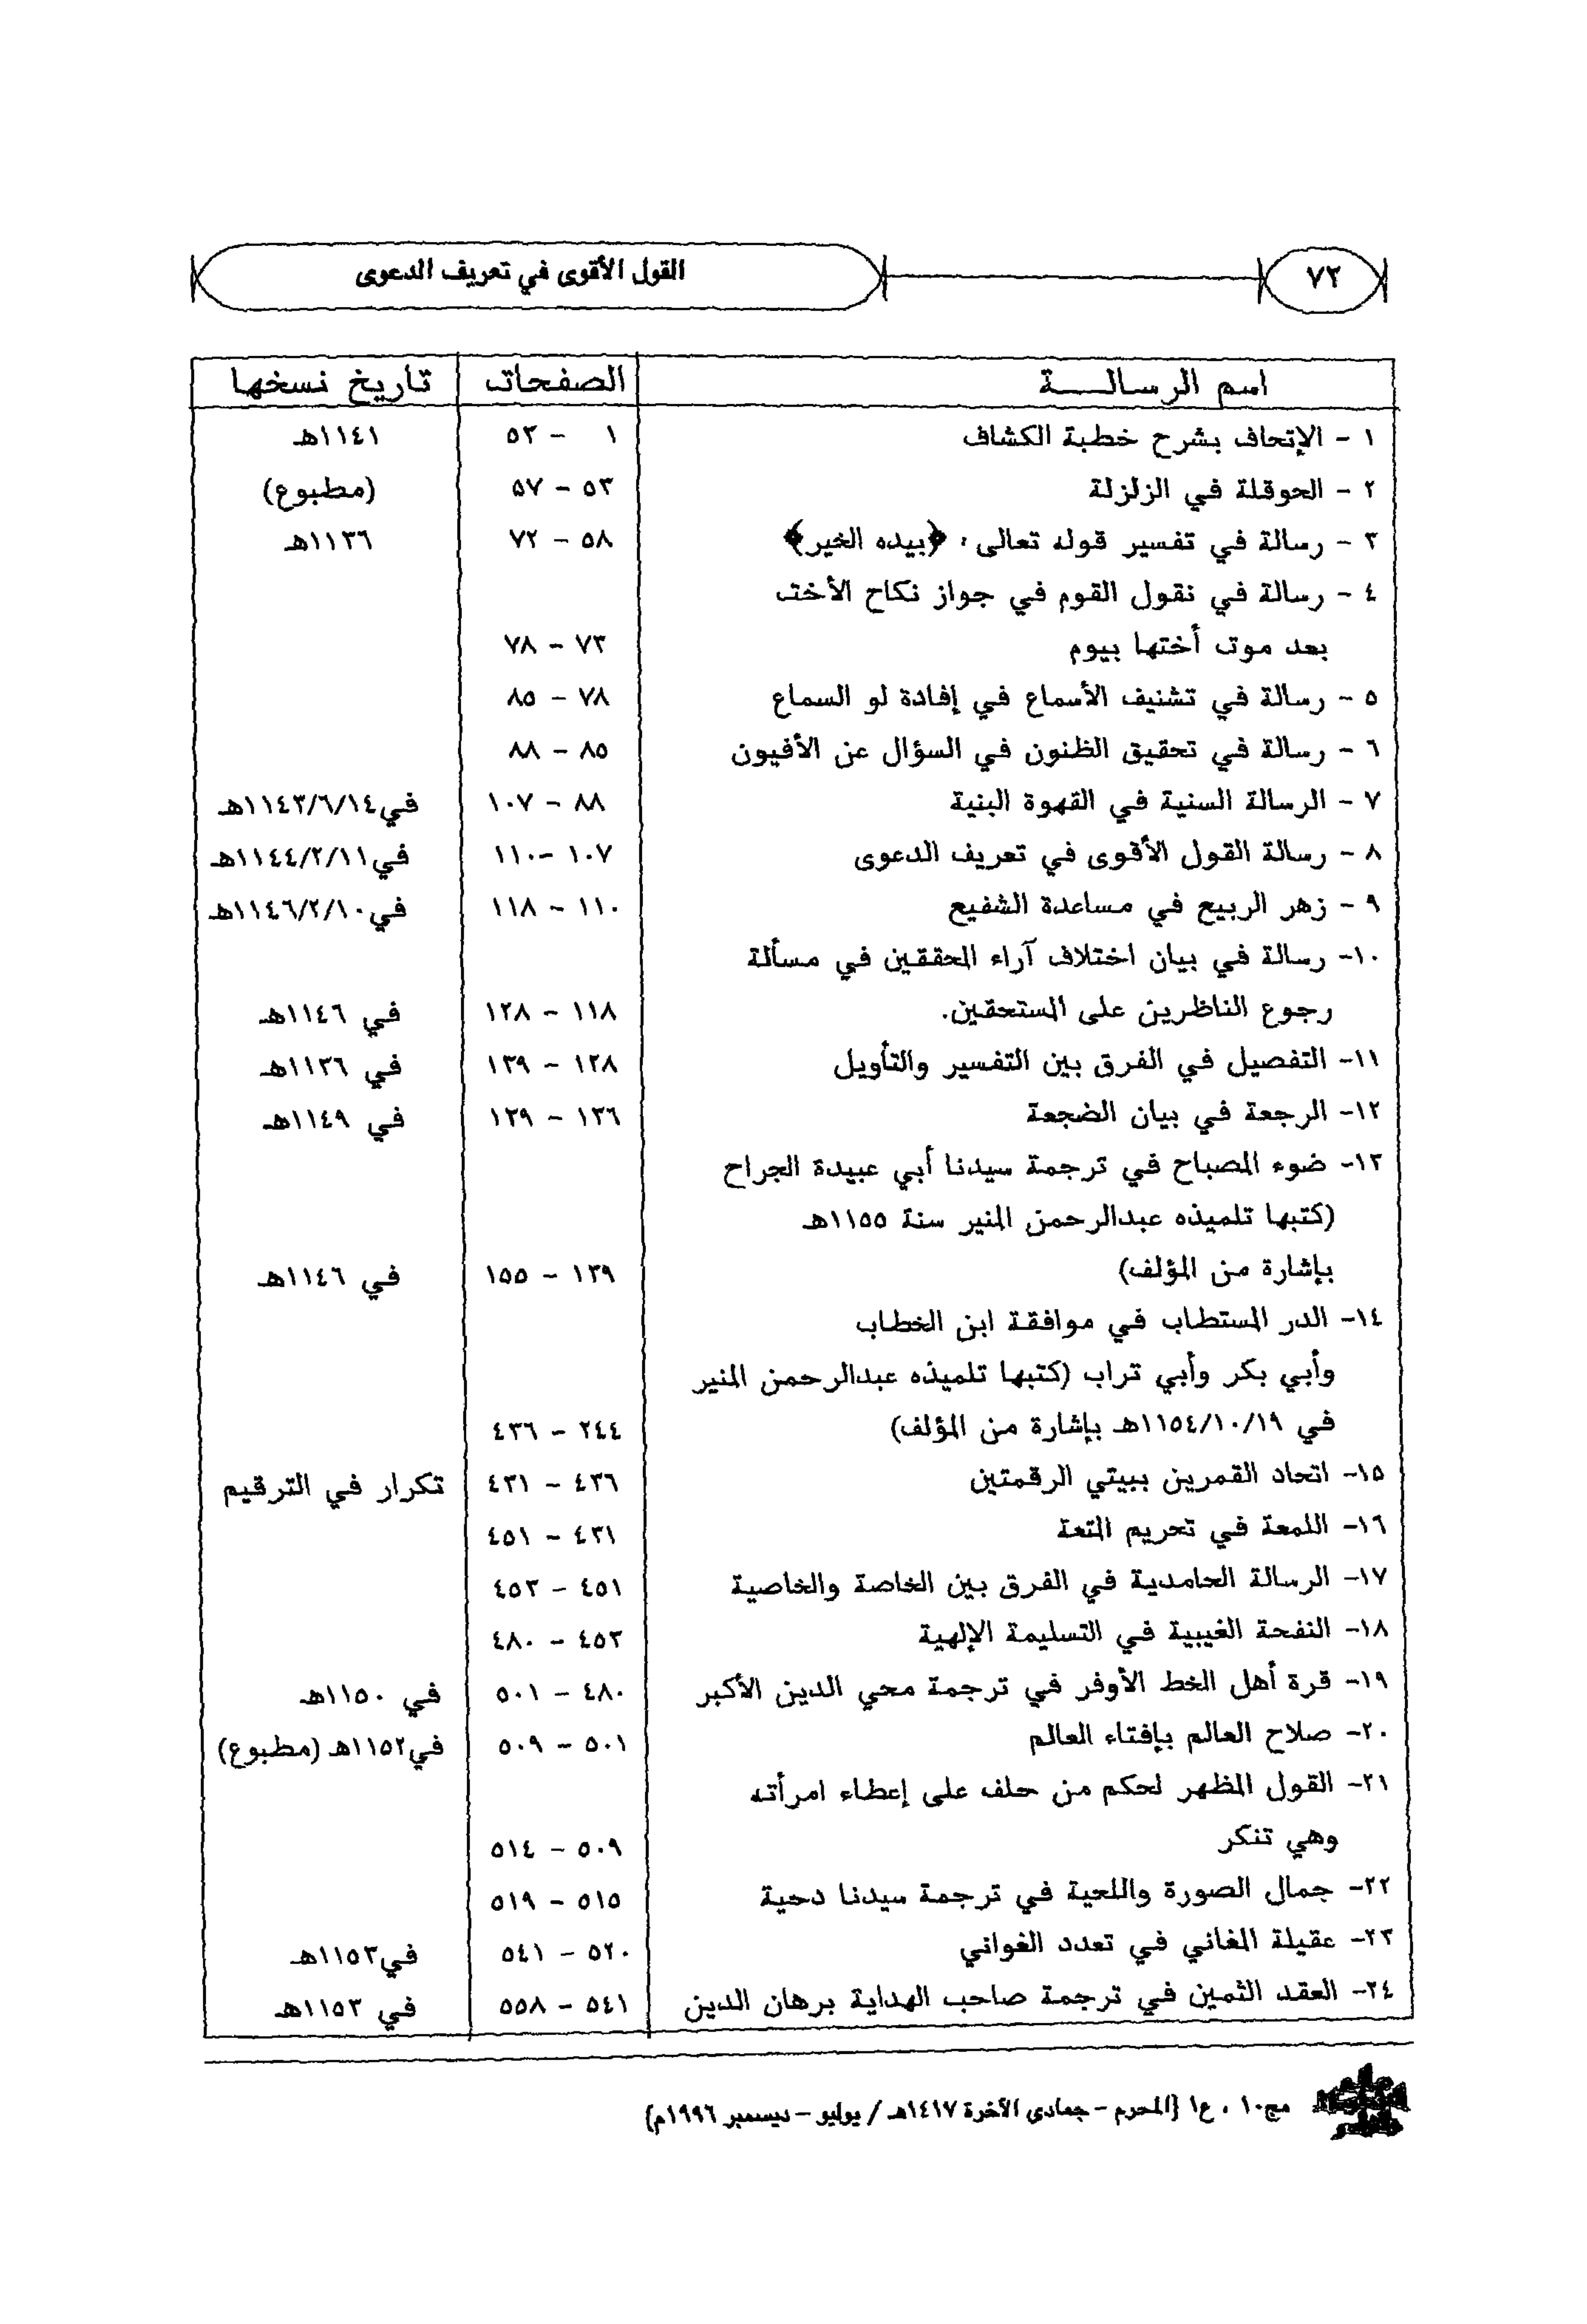 ٧٢ القول الأقوى في تعريف الدعوى
اسم الرسالــــة الصفحات تاريخ نسخها
١ - الإتحاف بشرح خطبة الكشاف ١ - ٥٣ ١١٤١هـ
٢ - الحوقلة في الزلزلة ٥٣ - ٥٧ (مطبوع)
٣ - رسالة في تفسير قوله تعالى : ﴿بيده الخير﴾ ٥٨ - ٧٢ ١١٣٦هـ
٤ - رسالة في نقول القوم في جواز نكاح الأخت
بعد موت أختها بيوم ٧٣ - ٧٨
٥ - رسالة في تشنيف الأسماع في إفادة لو السماع ٧٨ - ٨٥
٦ - رسالة في تحقيق الظنون في السؤال عن الأفيون ٨٥ - ٨٨
٧ - الرسالة السنية في القهوة البنية ٨٨ - ١٠٧ في١١٤٣/٦/١٤هـ
٨ - رسالة القول الأقوى في تعريف الدعوى ١٠٧ -١١٠ في١١٤٤/٢/١١هـ
٩ - زهر الربيع في مساعدة الشفيع ١١٠ - ١١٨ في١١٤٦/٢/١٠هـ
١٠- رسالة في بيان اختلاف آراء المحققين في مسألة
رجوع الناظرين على المستحقين. ١١٨ - ١٢٨ في ١١٤٦هـ
١١- التفصيل في الفرق بين التفسير والتأويل ١٢٨ - ١٣٩ في ١١٣٦هـ
١٢- الرجعة في بيان الضجعة ١٣٦ - ١٣٩ في ١١٤٩هـ
١٣- ضوء المصباح في ترجمة سيدنا أبي عبيدة الجراح
(كتبها تلميذه عبدالرحمن المنير سنة ١١٥٥هـ
بإشارة من المؤلف) ١٣٩ - ١٥٥ في ١١٤٦هـ
١٤- الدر المستطاب في موافقة ابن الخطاب
وأبي بكر وأبي تراب (كتبها تلميذه عبدالرحمن المنير
في ١١٥٤/١٠/١٩هـ بإشارة من المؤلف) ٢٤٤ - ٤٣٦
١٥- اتحاد القمرين ببيتي الرقمتين ٤٣٦ - ٤٣١ تكرار في الترقيم
١٦- اللمعة في تحريم المتعة ٤٣١ - ٤٥١
١٧- الرسالة الحامدية في الفرق بين الخاصة والخاصية ٤٥١ - ٤٥٣
١٨- النفحة الغيبية في التسليمة الإلهية ٤٥٣ - ٤٨٠
١٩- قرة أهل الخط الأوفر في ترجمة محي الدين الأكبر ٤٨٠ - ٥٠١ في ١١٥٠هـ
٢٠- صلاح العالم بإفتاء العالم ٥٠١ - ٥٠٩ في١١٥٢هـ (مطبوع)
٢١- القول المظهر لحكم من حلف على إعطاء امرأته
وهي تنكر ٥٠٩ - ٥١٤
٢٢- جمال الصورة واللحية في ترجمة سيدنا دحية ٥١٥ - ٥١٩
٢٣- عقيلة المغاني في تعدد الغواني ٥٢٠ - ٥٤١ في١١٥٣هـ
٢٤- العقد الثمين في ترجمة صاحب الهداية برهان الدين ٥٤١ - ٥٥٨ في ١١٥٣هـ
مج١٠ ، ع١ (المحرم - جمادى الآخرة ١٤١٧هـ / يوليو - ديسمبر ١٩٩٦م)